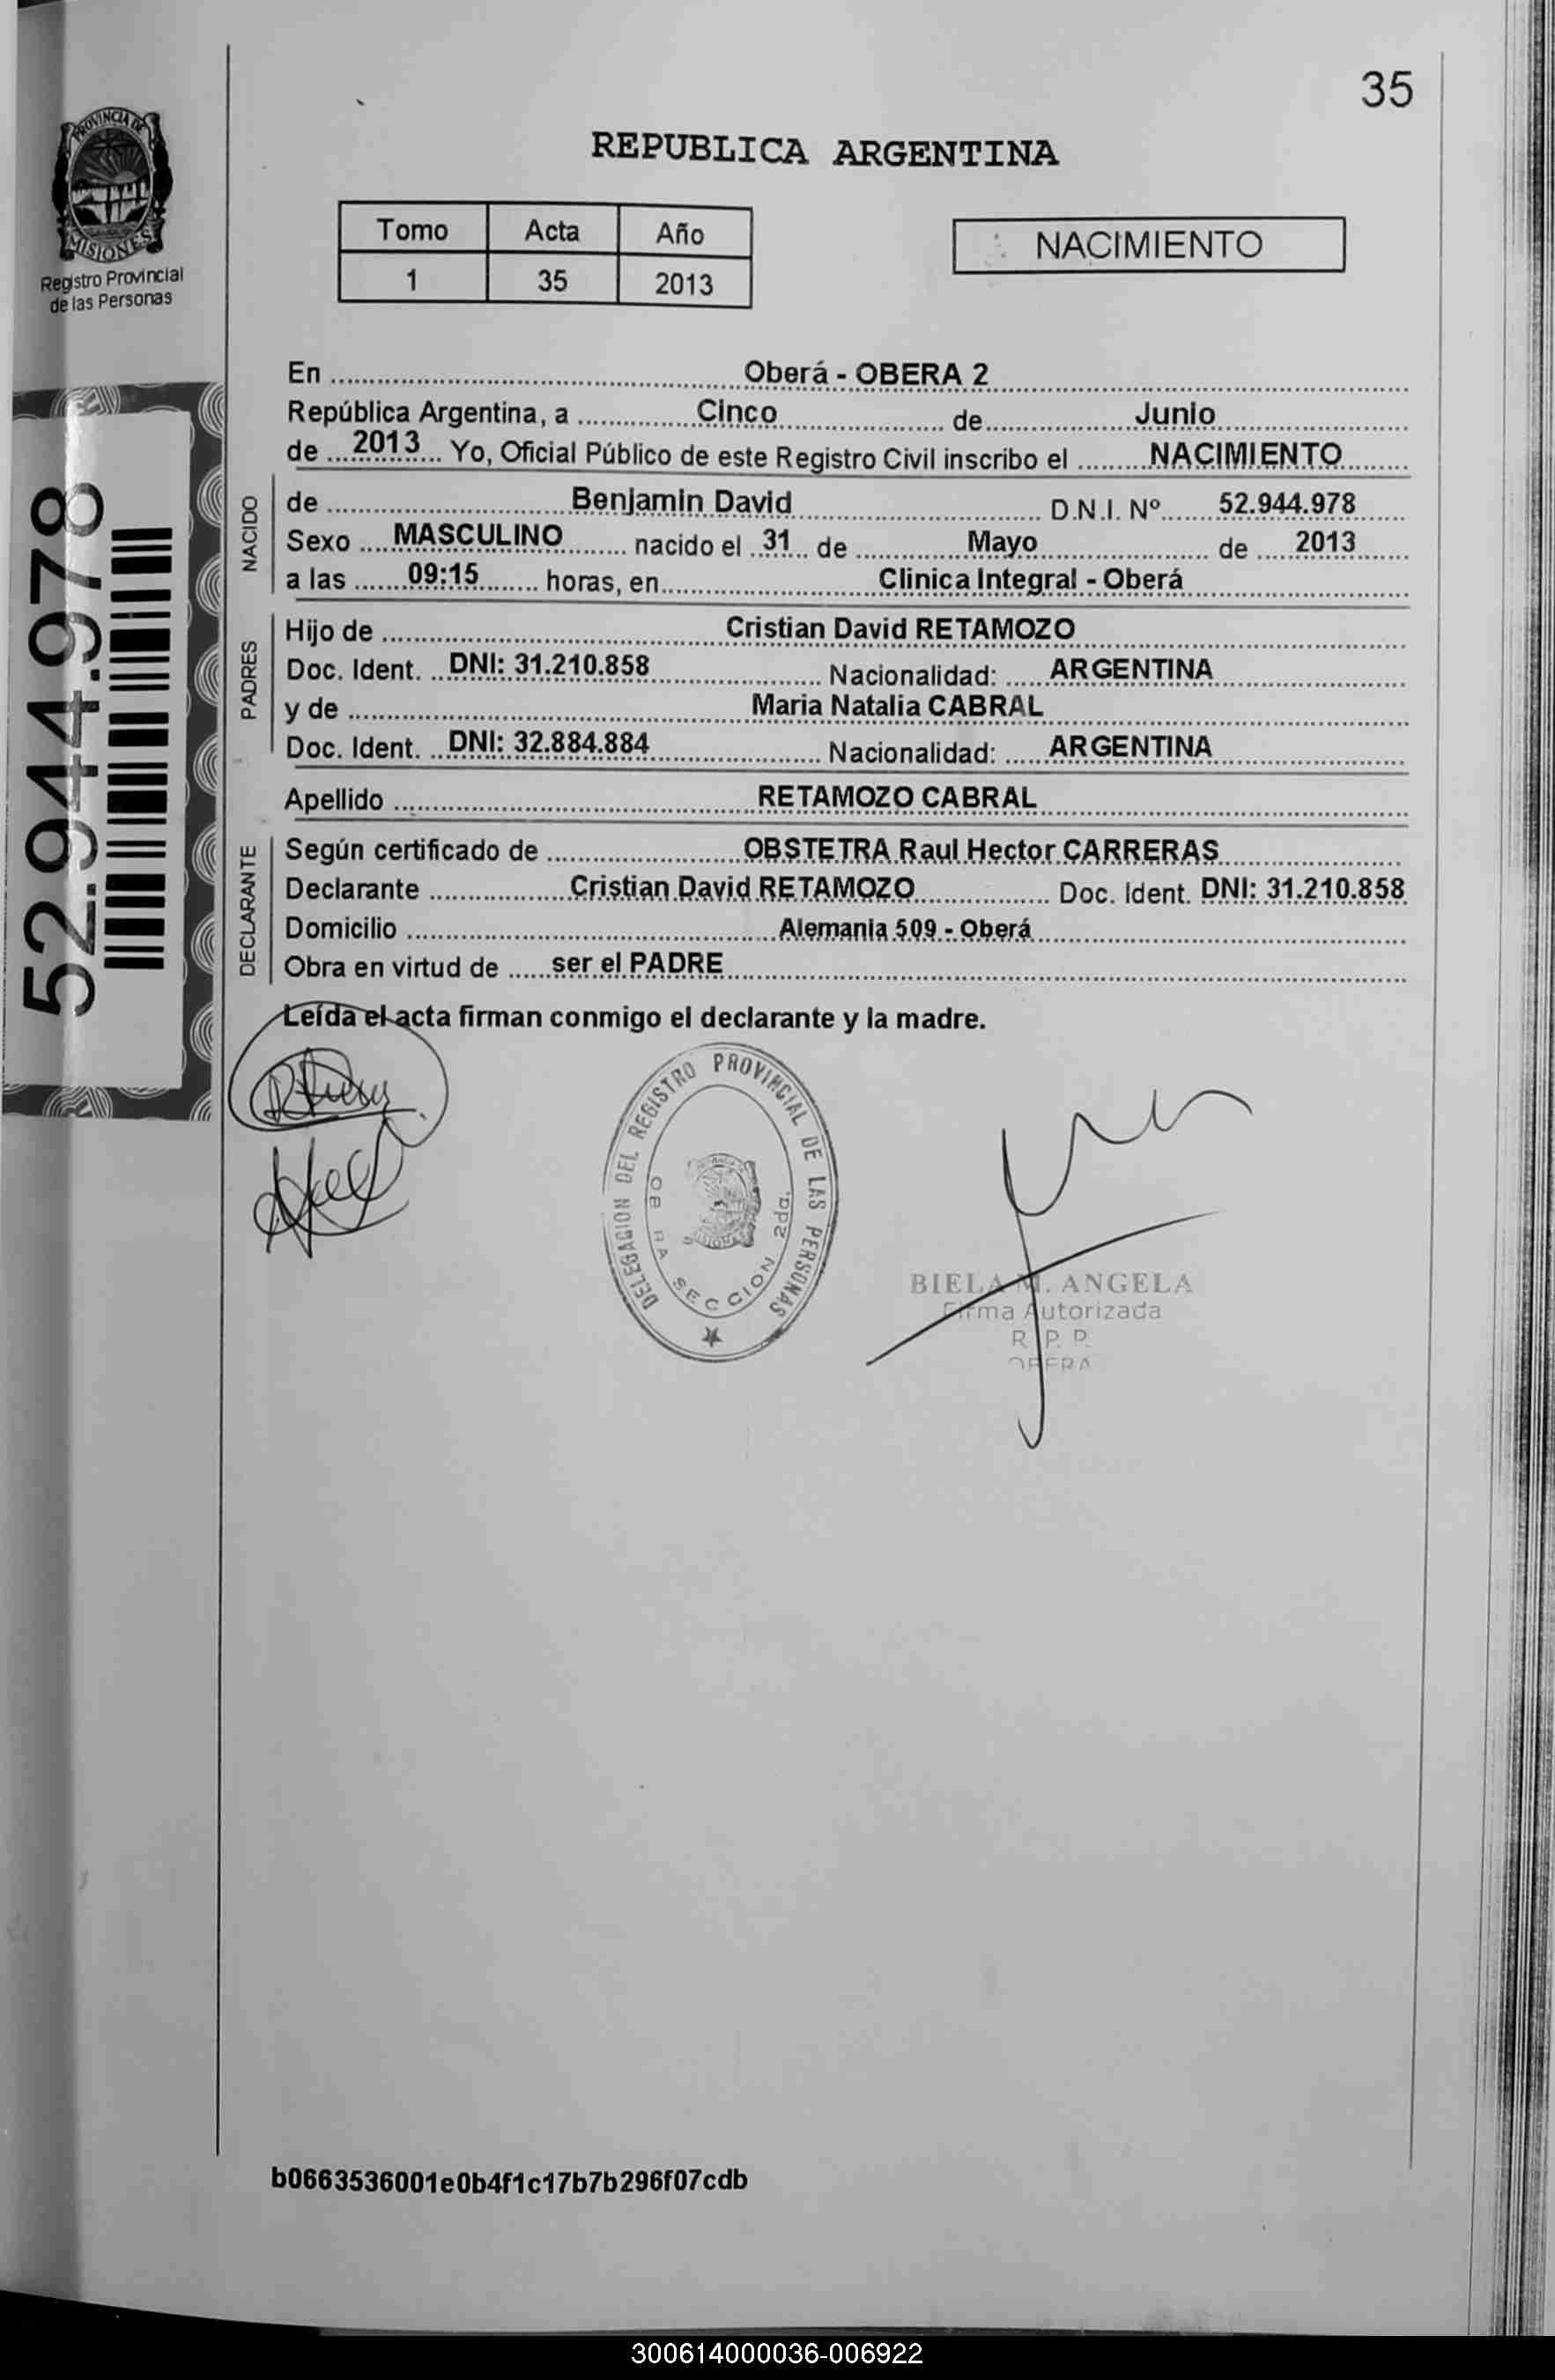 35
PROVINCIA DE
MISIONES
Registro Provincial
de las Personas
REPUBLICA ARGENTINA
Tomo Acta Año
1 35 2013
NACIMIENTO
En Oberá - OBERA 2
República Argentina, a Cinco de Junio
de 2013 Yo, Oficial Público de este Registro Civil inscribo el NACIMIENTO
NACIDO
de Benjamin David D.N.I. Nº 52.944.978
Sexo MASCULINO nacido el 31 de Mayo de 2013
a las 09:15 horas, en Clinica Integral - Oberá
PADRES
Hijo de Cristian David RETAMOZO
Doc. Ident. DNI: 31.210.858 Nacionalidad: ARGENTINA
y de Maria Natalia CABRAL
Doc. Ident. DNI: 32.884.884 Nacionalidad: ARGENTINA
Apellido RETAMOZO CABRAL
DECLARANTE
Según certificado de OBSTETRA Raul Hector CARRERAS
Declarante Cristian David RETAMOZO Doc. Ident. DNI: 31.210.858
Domicilio Alemania 509 - Oberá
Obra en virtud de ser el PADRE
Leída el acta firman conmigo el declarante y la madre.
52.944.978
DELEGACION DEL REGISTRO PROVINCIAL DE LAS PERSONAS
SECCION 2da.
BIELA M. ANGELA
Firma Autorizada
R. P. P.
OBERA
b0663536001e0b4f1c17b7b296f07cdb
300614000036-006922